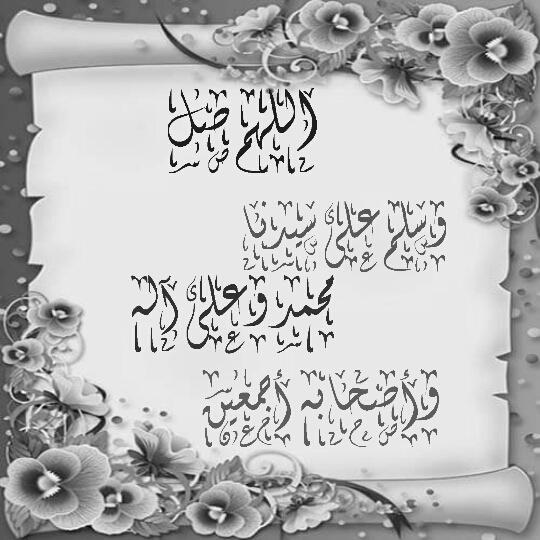 اللهم صل
وسلم على سيدنا
محمد وعلى آله
وأصحابه أجمعين